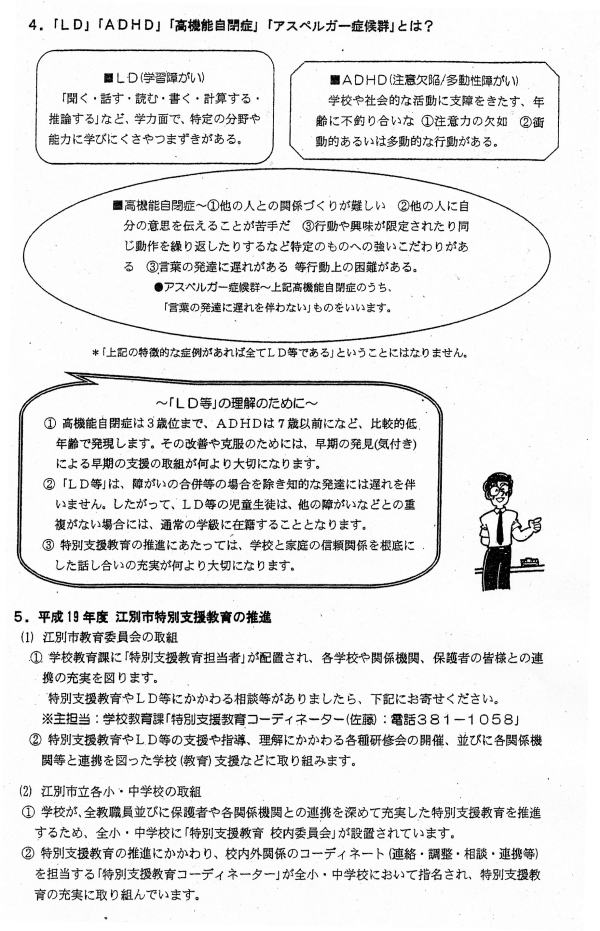 4．「ＬＤ」「ＡＤＨＤ」「高機能自閉症」「アスペルガー症候群」とは？
■ＬＤ(学習障がい)
「聞く・話す・読む・書く・計算する・
推論する」など、学力面で、特定の分野や
能力に学びにくさやつまずきがある。
■ＡＤＨＤ(注意欠陥/多動性障がい)
学校や社会的な活動に支障をきたす、年
齢に不釣り合いな ①注意力の欠如 ②衝
動的あるいは多動的な行動がある。
■高機能自閉症～①他の人との関係づくりが難しい ②他の人に自
分の意思を伝えることが苦手だ ③行動や興味が限定されたり同
じ動作を繰り返したりするなど特定のものへの強いこだわりがあ
る ③言葉の発達に遅れがある 等行動上の困難がある。
●アスペルガー症候群～上記高機能自閉症のうち、
「言葉の発達に遅れを伴わない」ものをいいます。
＊「上記の特徴的な症例があれば全てＬＤ等である」ということにはなりません。
～「ＬＤ等」の理解のために～
① 高機能自閉症は３歳位まで、ＡＤＨＤは７歳以前になど、比較的低
年齢で発現します。その改善や克服のためには、早期の発見(気付き)
による早期の支援の取組が何より大切になります。
② 「ＬＤ等」は、障がいの合併等の場合を除き知的な発達には遅れを伴
いません。したがって、ＬＤ等の児童生徒は、他の障がいなどとの重
複がない場合には、通常の学級に在籍することとなります。
③ 特別支援教育の推進にあたっては、学校と家庭の信頼関係を根底に
した話し合いの充実が何より大切になります。
5．平成19年度 江別市特別支援教育の推進
(1) 江別市教育委員会の取組
① 学校教育課に「特別支援教育担当者」が配置され、各学校や関係機関、保護者の皆様との連
携の充実を図ります。
特別支援教育やＬＤ等にかかわる相談等がありましたら、下記にお寄せください。
※主担当：学校教育課「特別支援教育コーディネーター(佐藤)：電話３８１－１０５８」
② 特別支援教育やＬＤ等の支援や指導、理解にかかわる各種研修会の開催、並びに各関係機
関等と連携を図った学校(教育)支援などに取り組みます。
(2) 江別市立各小・中学校の取組
① 学校が、全教職員並びに保護者や各関係機関との連携を深めて充実した特別支援教育を推進
するため、全小・中学校に「特別支援教育 校内委員会」が設置されています。
② 特別支援教育の推進にかかわり、校内外関係のコーディネート(連絡・調整・相談・連携等)
を担当する「特別支援教育コーディネーター」が全小・中学校において指名され、特別支援教
育の充実に取り組んでいます。